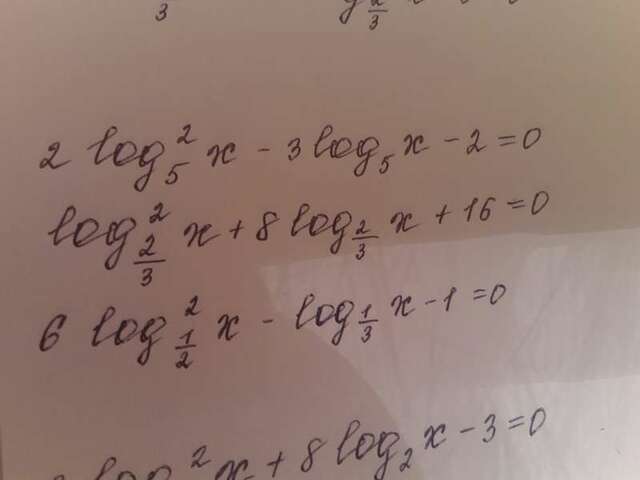 2 log₅² x - 3 log₅ x - 2 = 0
log²_{2/3} x + 8 log_{2/3} x + 16 = 0
6 log²_{1/2} x - log_{1/3} x - 1 = 0
log² x + 8 log₂ x - 3 = 0